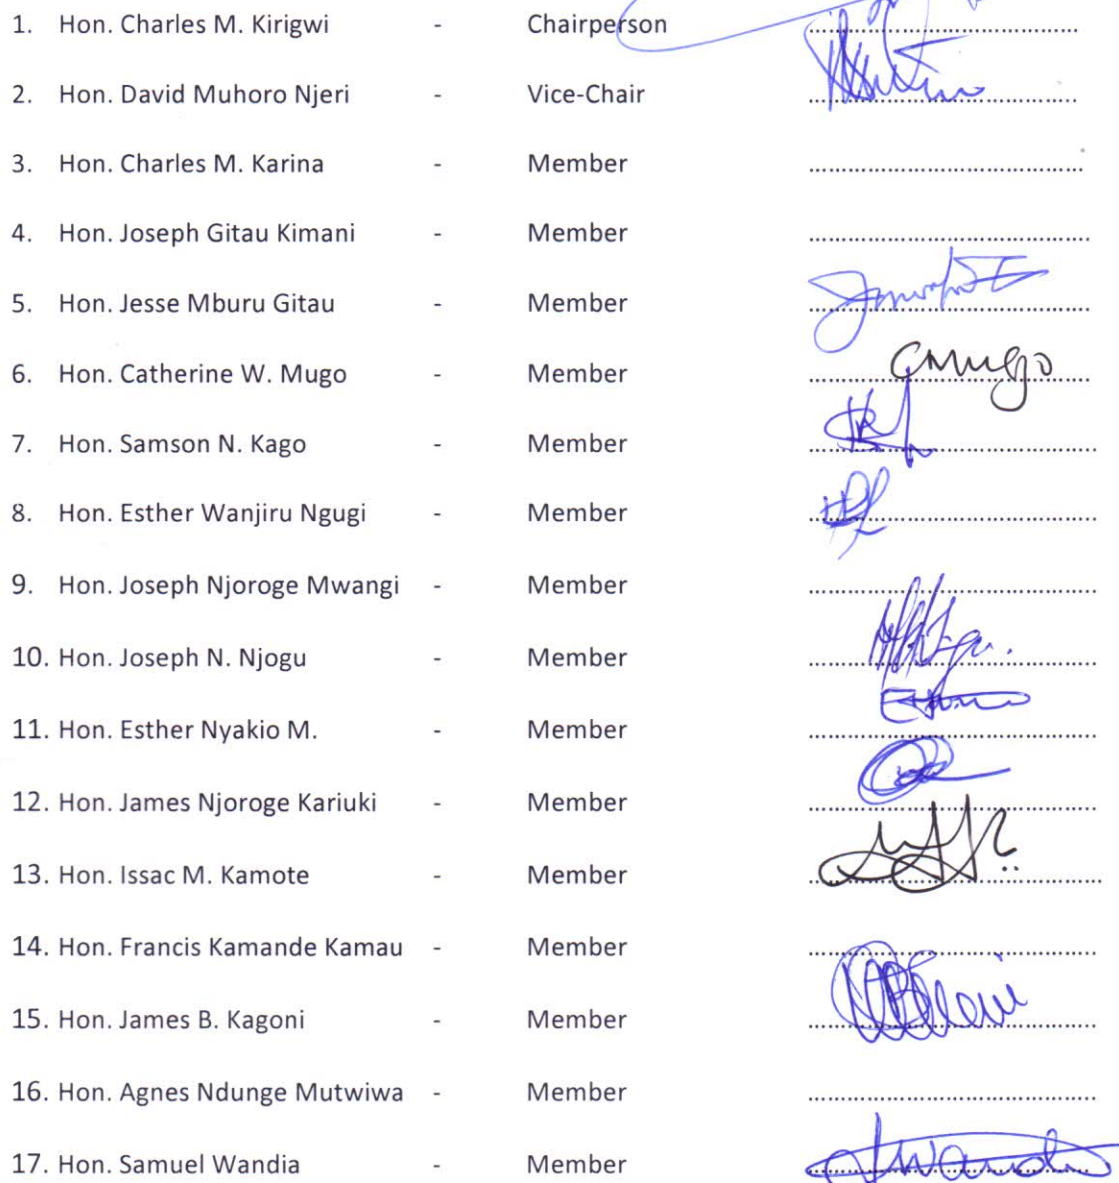 1. Hon. Charles M. Kirigwi - Chairperson ........................................
2. Hon. David Muhoro Njeri - Vice-Chair ........................................
3. Hon. Charles M. Karina - Member ........................................
4. Hon. Joseph Gitau Kimani - Member ........................................
5. Hon. Jesse Mburu Gitau - Member ........................................
6. Hon. Catherine W. Mugo - Member ........................................ CMugo
7. Hon. Samson N. Kago - Member ........................................
8. Hon. Esther Wanjiru Ngugi - Member ........................................
9. Hon. Joseph Njoroge Mwangi - Member ........................................
10. Hon. Joseph N. Njogu - Member ........................................
11. Hon. Esther Nyakio M. - Member ........................................
12. Hon. James Njoroge Kariuki - Member ........................................
13. Hon. Issac M. Kamote - Member ........................................
14. Hon. Francis Kamande Kamau - Member ........................................
15. Hon. James B. Kagoni - Member ........................................
16. Hon. Agnes Ndunge Mutwiwa - Member ........................................
17. Hon. Samuel Wandia - Member ........................................